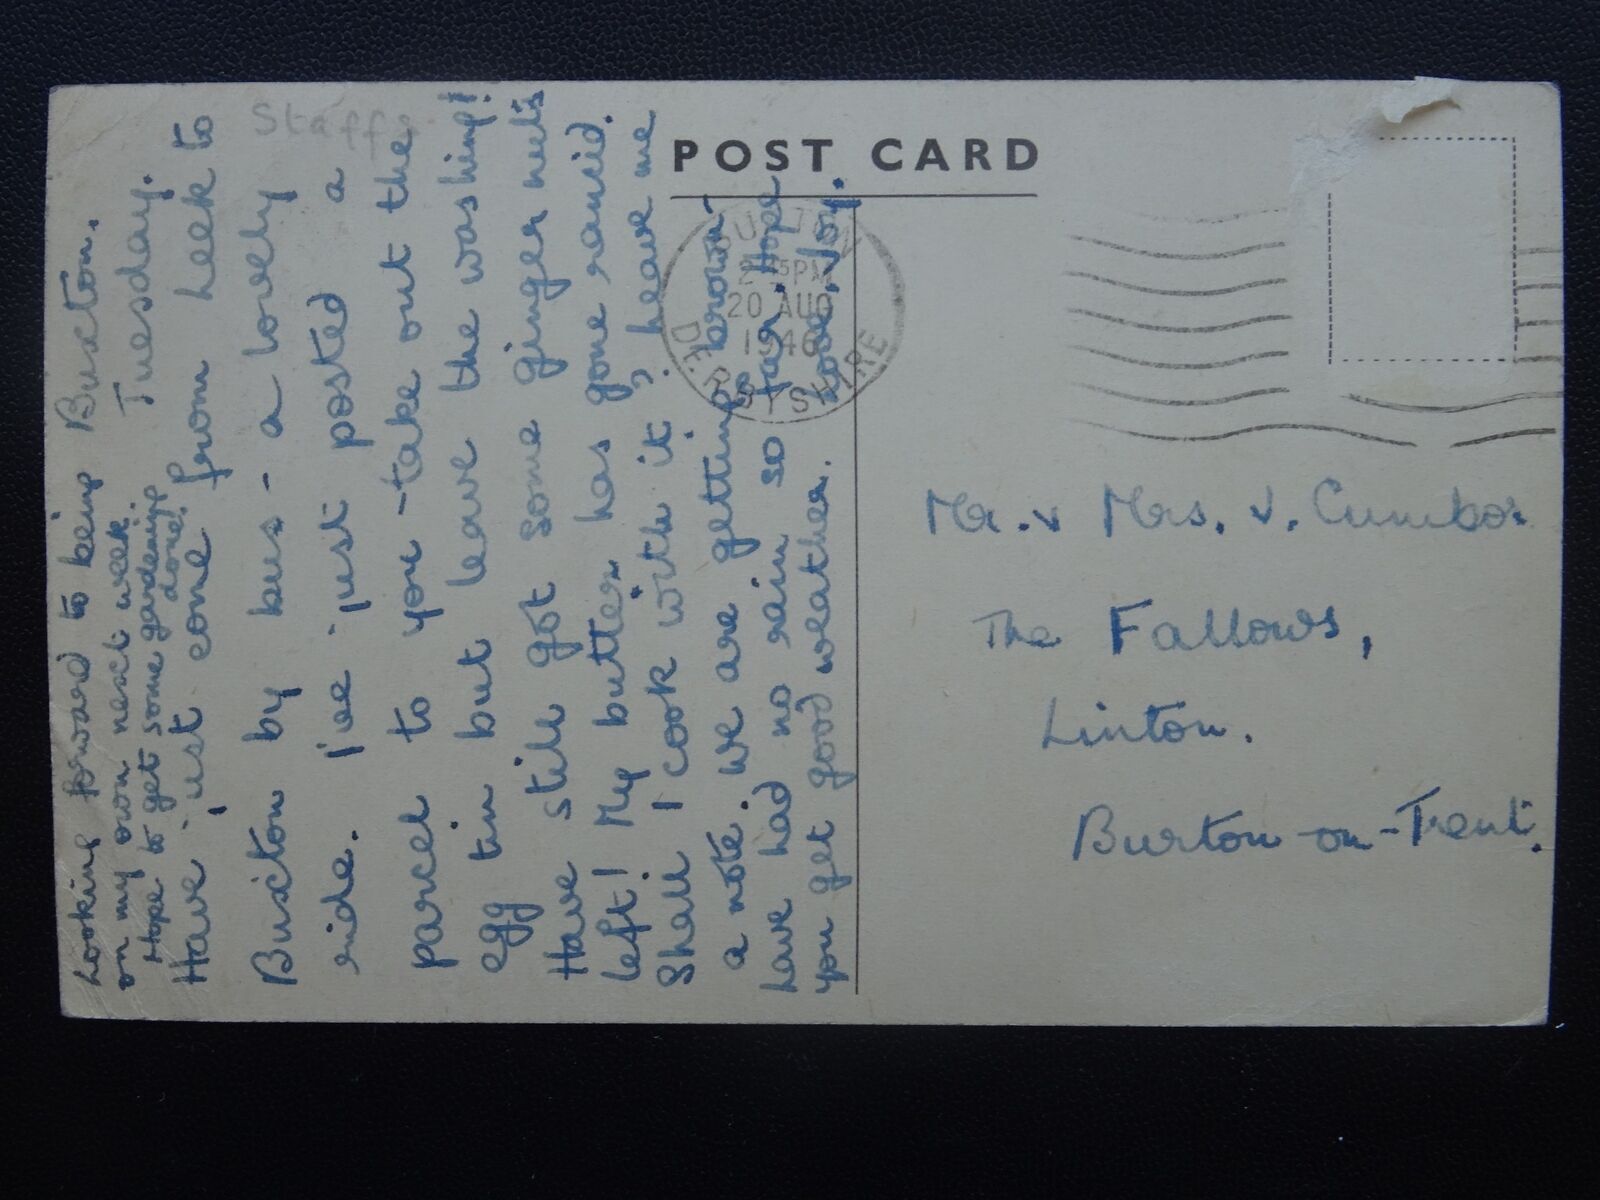 POST CARD
Staffs
BUXTON
DERBYSHIRE
20 AUG
1946
Buxton.
Tuesday.
Have just come from Leek to
Buxton by bus - a lovely
ride. I've just posted a
parcel to you - take out the
egg tin but leave the washing!
Have still got some ginger nuts
left! My butter has gone rancid.
Shall I cook with it? Leave me
a note. We are getting brown -
have had no rain so far. Hope
you get good weather. Love, Joy.
Looking forward to being
on my own next week.
Hope to get some gardening
done!
Mr. & Mrs. V.
The Fallows,
Linton.
Burton-on-Trent.